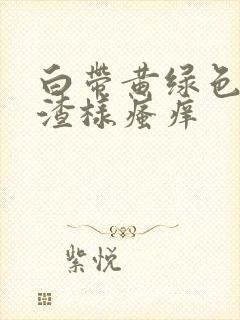 白带黄绿色
渣样瘙痒
紫悦